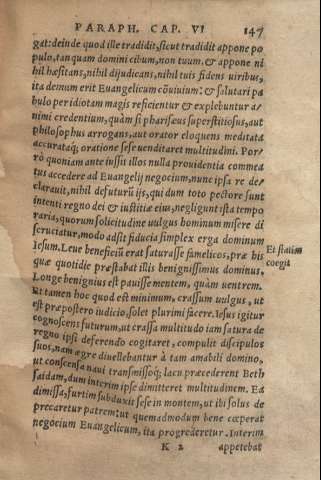 PARAPH. CAP. VI 147
gat: deinde quod ille tradidit, sicut tradidit appone po
pulo, tanquam domini cibum, non tuum, & appone ni
hil hæsitans, nihil dijudicans, nihil tuis fidens uiribus,
ita demum erit Euangelicum cōuiuium: & salutari pa
bulo per idiotam magis reficientur & explebuntur a/
nimi credentium, quàm si phariseus superstitiosus, aut
philosophus arrogans, aut orator eloquens meditata
accurataq́; oratione sese uenditaret multitudini. Por/
rò quoniam ante iussit illos nulla prouidentia commea
tus accedere ad Euangelij negocium, nunc ipsa re de/
clarauit, nihil defuturū ijs, qui dum toto pectore sunt
intenti regno dei & iustitiæ eius, negligunt ista tempo
raria, quorum solicitudine uulgus hominum misere di
scruciatur, modo adsit fiducia simplex erga dominum
Iesum. Leue beneficiū erat saturasse famelicos, præ his
quæ quotidie præstabat illis benignissimus dominus.
Longe benignius est pauisse mentem, quàm uentrem.
Et tamen hoc quod est minimum, crassum uulgus, ut
est præpostero iudicio, solet plurimi facere. Iesus igitur
cognoscens futurum, ut crassa multitudo iam satura de
regno ipsi deferendo cogitaret, compulit discipulos
suos, nam ægre diuellebantur à tam amabili domino,
ut conscensa naui transmissoq́; lacu præcederent Beth
saidam, dum interim ipse dimitteret multitudinem. Ea
dimissa, furtim subduxit sese in montem, ut ibi solus de
precaretur patrem: ut quemadmodum bene cœperat
negocium Euangelicum, ita progrederetur. Interim
K 2 appetebat
Et statim
coegit